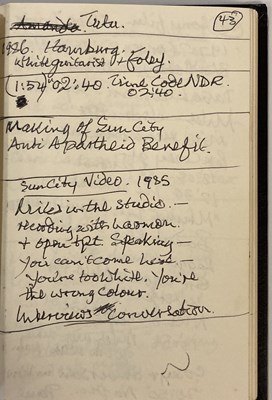 Tutu. (43)
1986. Hamburg.
white guitarist + Foley.
(1:54) "02:40. Time Code NDR.
02:40.
Making of Sun City
Anti Apartheid Benefit.
Sun City Video. 1985
Miles in the Studio. —
recording with
+ open tpt. Speaking —
You can't come here —
You're too white. You're
the wrong colour.
Interviews Conversation.